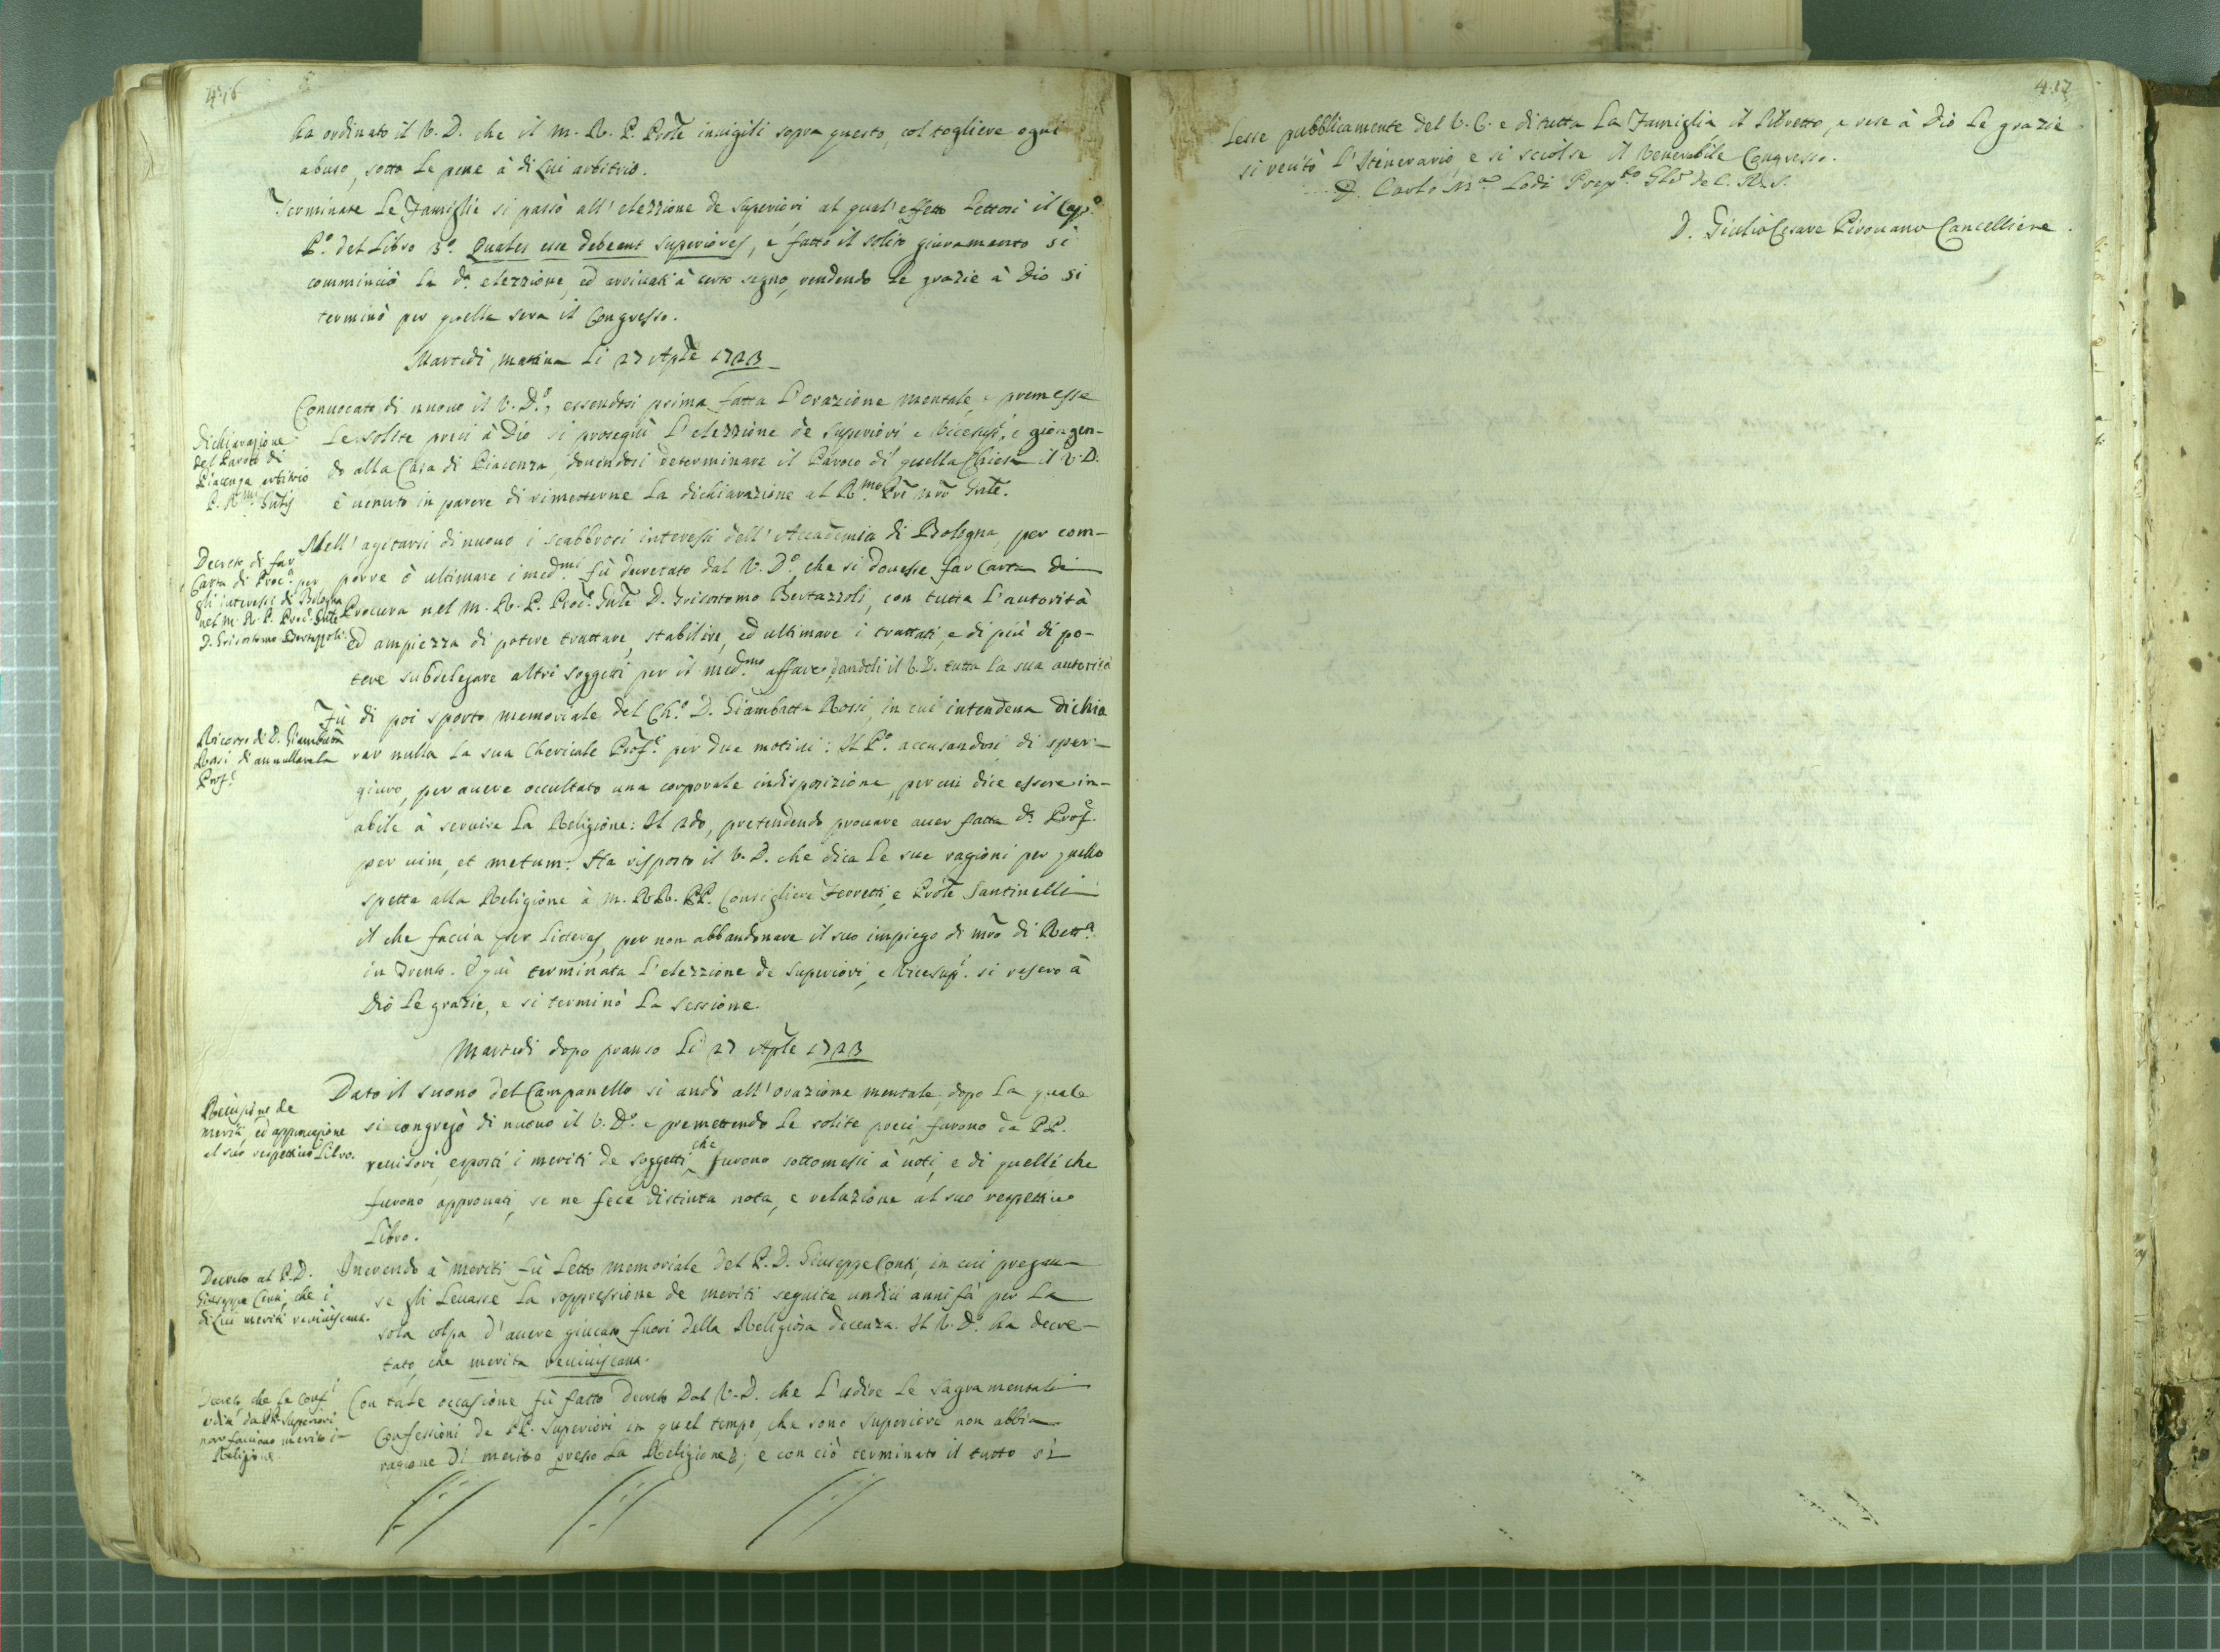 416
ha ordinato il V. D. che il M. R. P. Prõle invigili sopra questo, col togliere ogni
abuso, sotto le pene à di lui arbitrio.
Terminate le Famiglie si passò all' elezzione de Superiori, al qual' effetto lettosi il Cap.º
P.º del Libro 3.º Quales esse debeant Superiores, e fatto il solito giuramento si
comminciò la d.ª elezzione, ed arrivati à certo segno, rendendo le grazie à Dio si
terminò per quella sera il Congresso.
Martedì mattina li 27 Aplẽ 1723
Convocato di nuovo il V. D.º, essendosi prima fatta l'orazione mentale, e premesse
le solite preci à Dio si proseguì l'elezzione de Superiori e Vicesup.ri, e giongen-
do alla Casa di Piacenza, dovendosi determinare il Paroco di quella Chiesa il V. D.
è venuto in parere di rimetterne la dichiarazione al R.mo Prẽ nrõ Gnłe.
Dichiarazione
del Paroco di
Piacenza arbitrio
P. R.mi Gnłis
Nell' agitarsi di nuovo i scabbrosi interessi dell' Accademia di Bologna, per com-
porre ò ultimare i med.mi fù decretato dal V. D.º, che si dovesse far Carta di
Procura nel M. R. P. Proc.e Gnłe D. Grisostomo Bertazzoli, con tutta l'autorità
ed ampiezza di potere trattare, stabilire, ed ultimare i trattati, e di più di po-
tere subdelegare altri soggetti per il med.mo affare, dandoli il V. D. tutta la sua autorità
Decreto di far
Carta di Proc.a per
gli interessi di Bologna
nel M. R. P. Proc. Gnłe
D. Grisostomo Bertazzoli.
Fù di poi sporto memoriale del Ch.º D. Giambatta Rossi, in cui intendeva dichia
rar nulla la sua Chericale Prof.e per due motivi: Il P.º accusandosi di sper-
giuro, per avere occultato una corporale indisposizione, per cui dice essere in-
abile à servire la Religione: Il 2do, pretendendo provare aver fatta d.ª Prof.e
per vim, et metum. Ha risposto il V. D. che dica le sue ragioni per quello
spetta alla Religione à M. RR. PP. Consigliere Ferretti, e Prõle Santinelli
il che faccia per litteras, per non abbandonare il suo impiego di mrõ di Rett.a
in Trento. E quì terminata l'elezzione de Superiori, e Vicesup.ri si resero à
Dio le grazie, e si terminò la sessione.
Ricorso di D. Giambatta
Rossi di annullare la
Prof.e
Martedì dopo pranso li 27 Aplẽ 1723
Dato il suono del Campanello si andò all' orazione mentale, dopo la quale
si congregò di nuovo il V. D.º e premettendo le solite preci, furono da PP.
revisori, esposti i meriti de soggetti, che furono sottomessi à voti, e di quelli, che
furono approvati, se ne fece distinta nota, e relazione al suo respettivo
Libro.
Recisione de
meriti, ed approvazione
al suo respettivo Libro.
Inerendo a meriti fù letto memoriale del P. D. Giuseppe Conti, in cui pregava
se gli levasse la soppressione de meriti seguita undici anni fà per la
sola colpa d' avere giucato fuori della Religiosa decenza. Il V. D.º ha decre-
tato, che merita reviviscant.
Decreto al P. D.
Giuseppe Conti, che i
di lui meriti reviviscant.
Con tale occasione fù fatto decreto dal V. D. che l'udire le Sagramentali
Confessioni de PP. Superiori in quel tempo, che sono Superiori non abbia
ragione di merito presso la Religione; e con ciò terminato il tutto si
Decreto, che le Conf.i
udite da PP. Superiori
non facciano merito in
Religione
417
lesse pubblicamente del V. C. e di tutta la Famiglia il Libretto, e rese à Dio le grazie
si recitò l'Itinerario, e si sciolse il Venerabile Congresso.
D. Carlo M.a Lodi Prep.to Glẽ de C. R. S.
D. Giulio Cesare Pirovano Cancelliere.